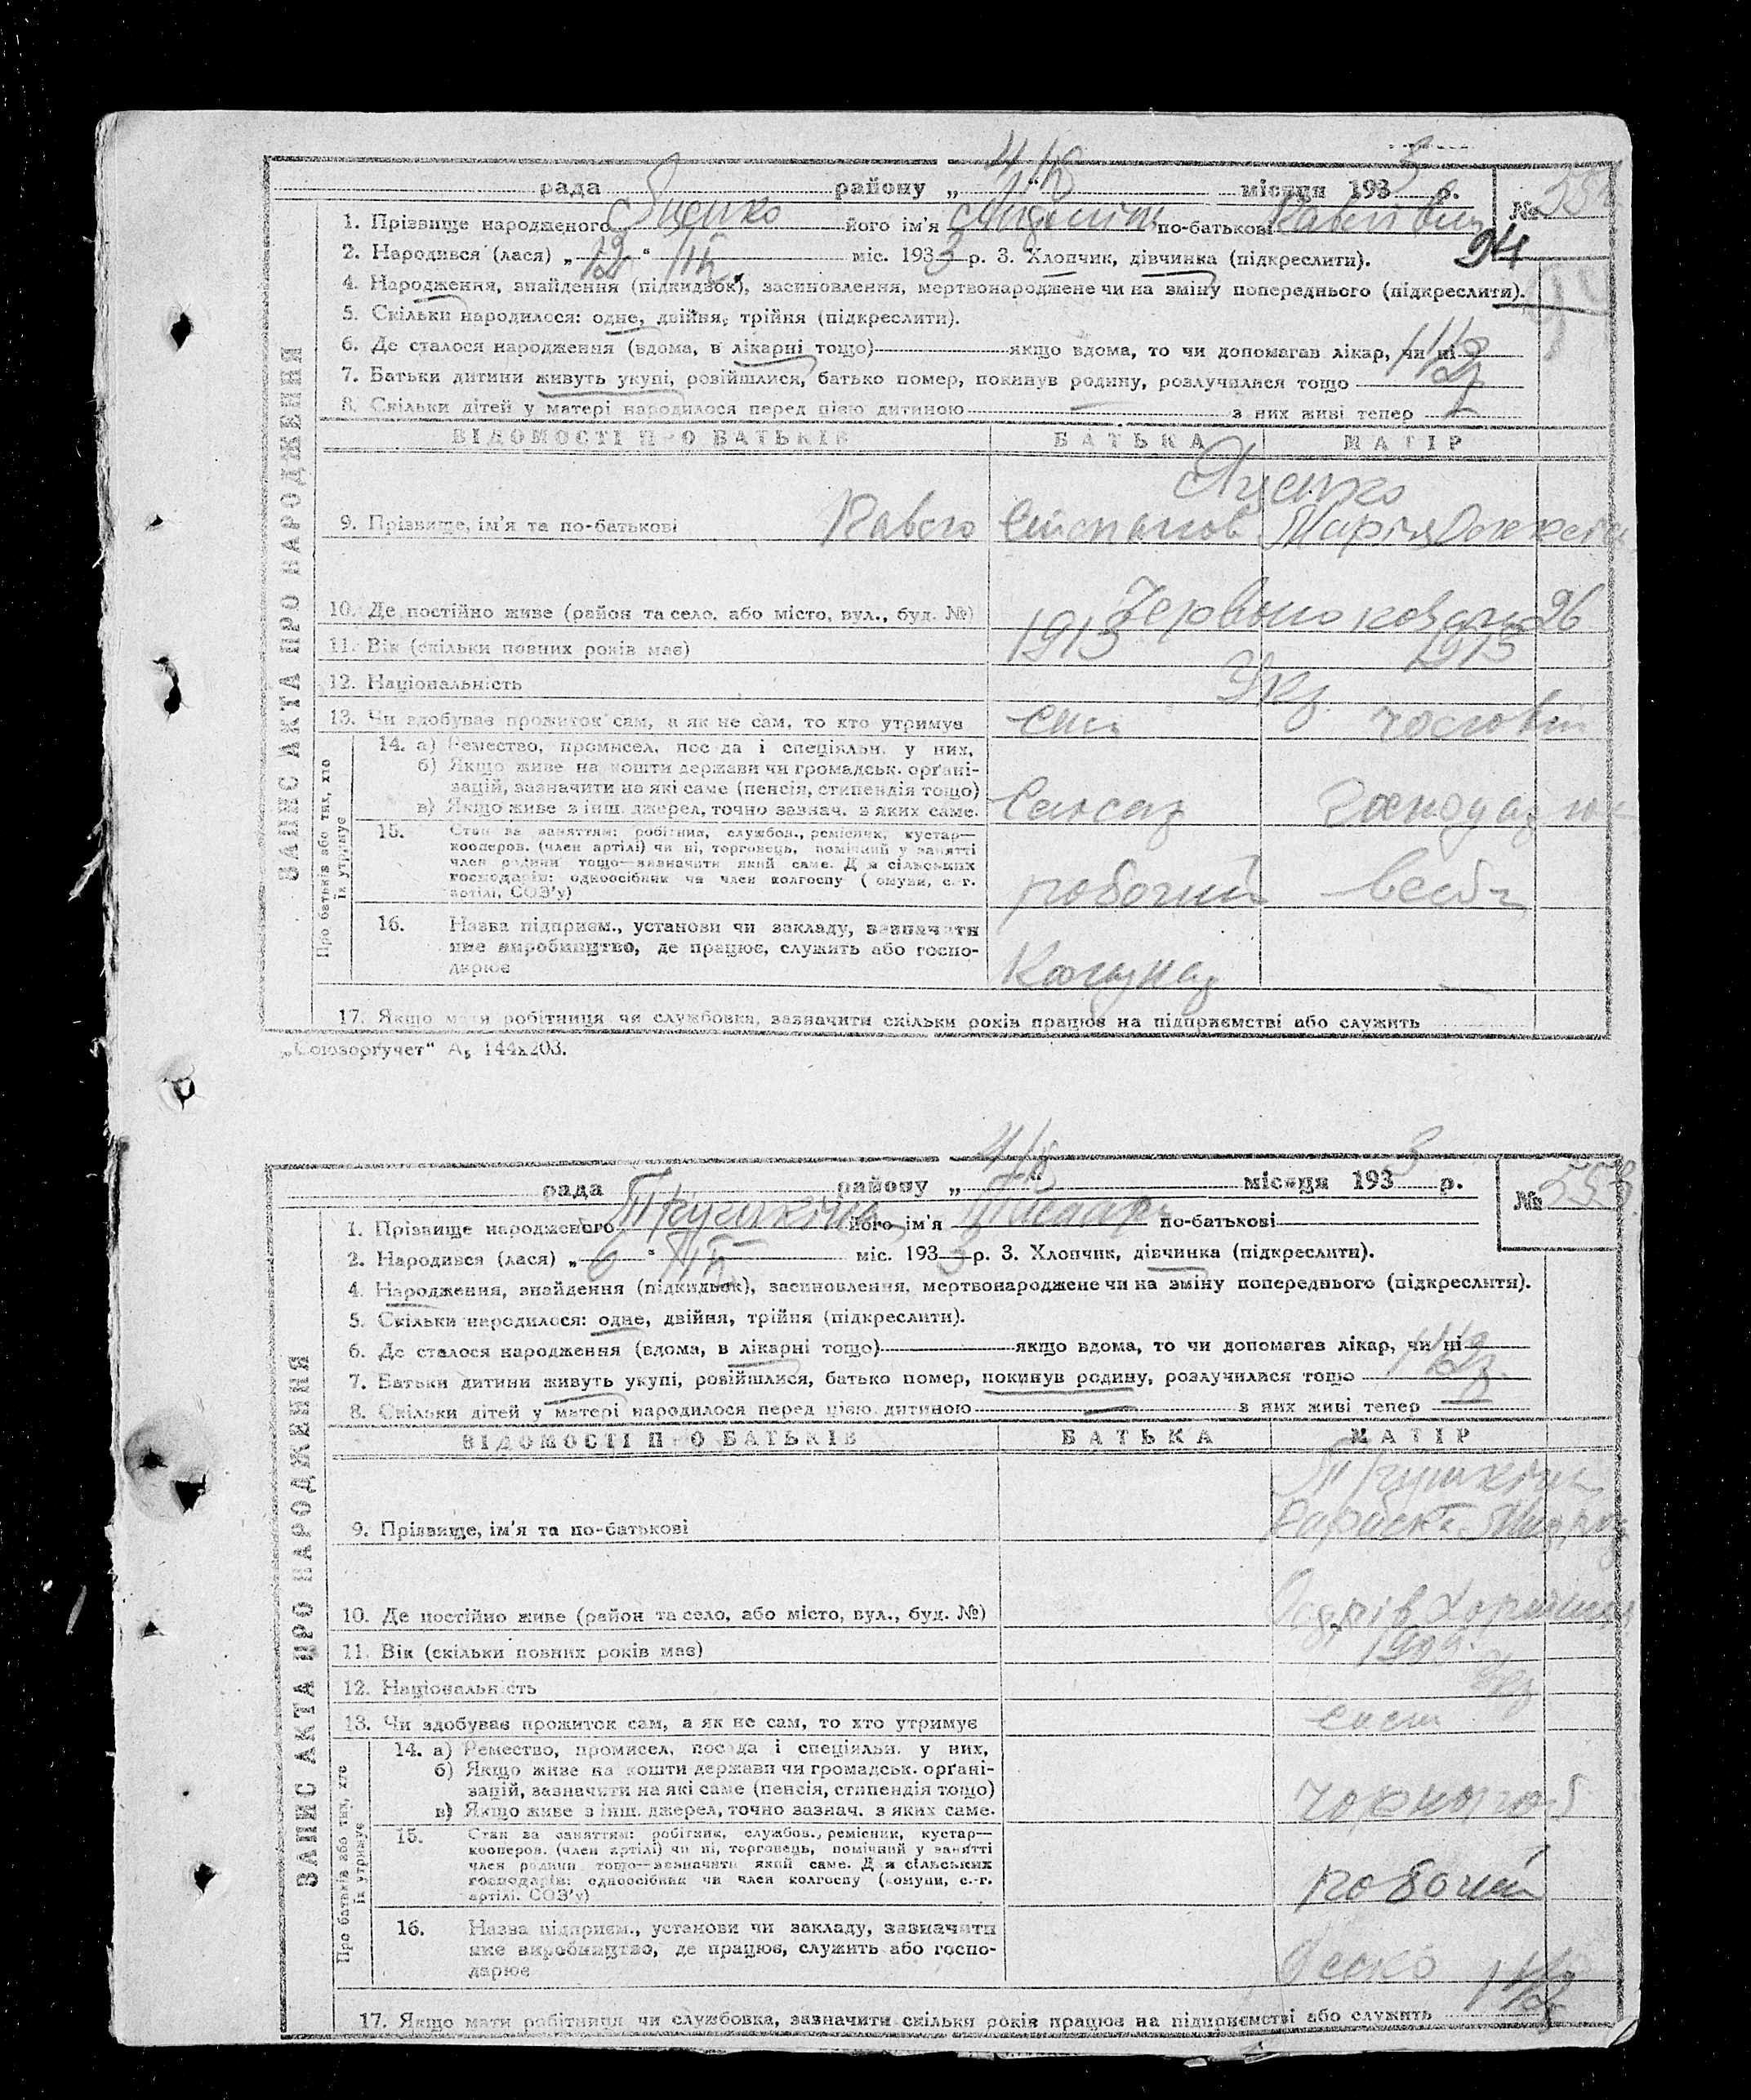 рада району „ 4/IV“ місяця 1933 р.
№ 554
1. Прізвище народженого Яценко його ім'я по-батькові
94
2. Народився (лася) „ 12 “ міс. 1933 р. 3. Хлопчик, дівчинка (підкреслити).
4. Народження, знайдення (підкидьок), засиновлення, мертвонароджене чи на зміну попереднього (підкреслити).
5. Скільки народилося: одне, двійня, трійня (підкреслити).
6. Де сталося народження (вдома, в лікарні тощо) якщо вдома, то чи допомагав лікар, чи ні
7. Батьки дитини живуть укупі, розійшлися, батько помер, покинув родину, розлучилися тощо
8. Скільки дітей у матері народилося перед цією дитиною — з них живі тепер
ВІДОМОСТІ ПРО БАТЬКІВ БАТЬКА МАТІР
Яценко
9. Прізвище, ім'я та по-батькові Павло Степанов Марія
10. Де постійно живе (район та село, або місто, вул., буд. №) 26
11. Вік (скільки повних років має) 1913 1915
12. Національність Укр
13. Чи здобуває прожиток сам, а як не сам, то хто утримує сам чоловік
14. а) Ремество, промисел, посада і спеціяльн. у них,
б) Якщо живе на кошти держави чи громадськ. органі-
зацій, зазначити на які саме (пенсія, стипендія тощо)
в) Якщо живе з інш. джерел, точно зазнач. з яких саме. Слюсар
15. Стан за заняттям: робітник, службов., ремісник, кустар—
кооперов. (член артілі) чи ні, торговець, помічний у занятті
член родини тощо—зазначити який саме. Для сільських
господарів: одноосібник чи член колгоспу (комуни, с.-г.
артілі, СОЗ'у) робочий
16. Назва підприєм., установи чи закладу, зазначити
яке виробництво, де працює, служить або госпо-
дарює Комунар
17. Якщо мати робітниця чи службовка, зазначити скільки років працює на підприємстві або служить
ЗАПИС АКТА ПРО НАРОДЖЕННЯ
Про батьків або тих, хто
їх утримує
„Союзоргучет“ А₅ 144х203.
рада району „ 4/IV“ місяця 1933 р.
№ 553
1. Прізвище народженого його ім'я по-батькові
2. Народився (лася) „ 6 “ міс. 1933 р. 3. Хлопчик, дівчинка (підкреслити).
4. Народження, знайдення (підкидьок), засиновлення, мертвонароджене чи на зміну попереднього (підкреслити).
5. Скільки народилося: одне, двійня, трійня (підкреслити).
6. Де сталося народження (вдома, в лікарні тощо) якщо вдома, то чи допомагав лікар, чи ні
7. Батьки дитини живуть укупі, розійшлися, батько помер, покинув родину, розлучилися тощо
8. Скільки дітей у матері народилося перед цією дитиною — з них живі тепер —
ВІДОМОСТІ ПРО БАТЬКІВ БАТЬКА МАТІР
9. Прізвище, ім'я та по-батькові
10. Де постійно живе (район та село, або місто, вул., буд. №)
11. Вік (скільки повних років має) 1909
12. Національність Укр
13. Чи здобуває прожиток сам, а як не сам, то хто утримує
14. а) Ремество, промисел, посада і спеціяльн. у них,
б) Якщо живе на кошти держави чи громадськ. органі-
зацій, зазначити на які саме (пенсія, стипендія тощо)
в) Якщо живе з інш. джерел, точно зазнач. з яких саме.
15. Стан за заняттям: робітник, службов., ремісник, кустар—
кооперов. (член артілі) чи ні, торговець, помічний у занятті
член родини тощо—зазначити який саме. Для сільських
господарів: одноосібник чи член колгоспу (комуни, с.-г.
артілі, СОЗ'у) робочий
16. Назва підприєм., установи чи закладу, зазначити
яке виробництво, де працює, служить або госпо-
дарює
17. Якщо мати робітниця чи службовка, зазначити скільки років працює на підприємстві або служить
ЗАПИС АКТА ПРО НАРОДЖЕННЯ
Про батьків або тих, хто
їх утримує